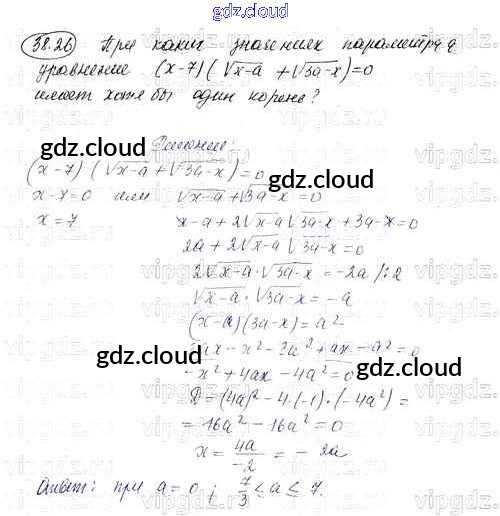 gdz.cloud
38.26 При каких значениях параметра a
уравнение (x-7)(√x-a + √3a-x)=0
имеет хотя бы один корень?
gdz.cloud
Решение:
(x-7)(√x-a + √3a-x)=0
gdz.cloud
x-7=0 или √x-a + √3a-x=0
x=7
x-a+2√x-a √3a-x+3a-x=0
2a+2√x-a √3a-x=0
2√x-a·√3a-x=-2a /:2
√x-a·√3a-x=-a
(x-a)(3a-x)=a²
3ax-x²-3a²+ax-a²=0
gdz.cloud
gdz.cloud
-x²+4ax-4a²=0
D=(4a)²-4·(-1)·(-4a²)=
=16a²-16a²=0
x=4a/-2=-2a
Ответ: при a=0; 7/3≤a≤7.
gdz.cloud